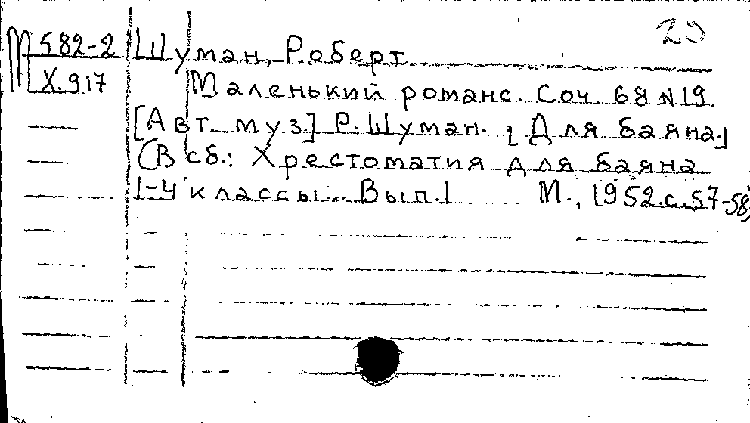 29
М 582-2 Шуман, Роберт
Х.917 Маленький романс. Соч. 68 №19.
[Авт. муз.] Р. Шуман. [Для баяна.]
(В сб.: Хрестоматия для баяна
1-4 классы. Вып. 1 М., 1952. с. 57-58)